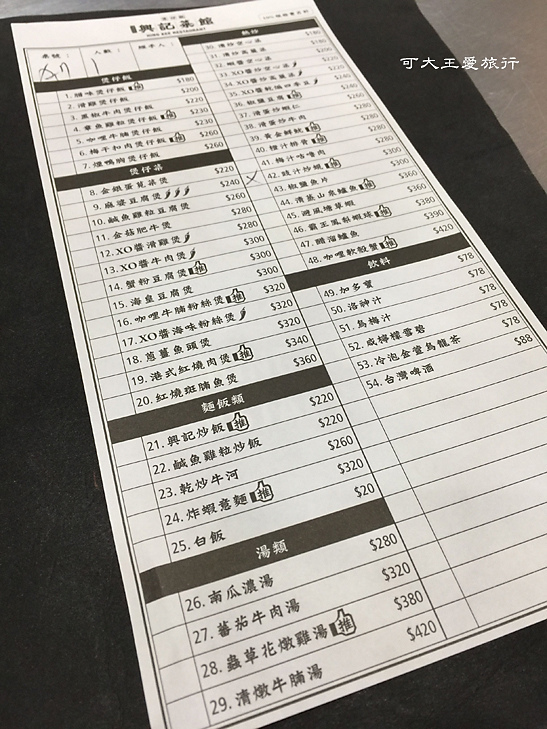 興記菜館
HING KEE RESTAURANT
桌號: 人數: 經手人:
煲仔飯
1. 腊味煲仔飯 推 $180
2. 滑雞煲仔飯 $200
3. 黑椒牛肉煲仔飯 $220
4. 章魚雞粒煲仔飯 推 $230
5. 咖哩牛腩煲仔飯 $220
6. 梅干扣肉煲仔飯 推 $260
7. 燻鴨胸煲仔飯 $260
煲仔菜
8. 金銀蛋莧菜煲 $220
9. 麻婆豆腐煲 $240
10. 鹹魚雞粒豆腐煲 $260
11. 金菇肥牛煲 $280
12. XO醬滑雞煲 $280
13. XO醬牛肉煲 $300
14. 蟹粉豆腐煲 推 $300
15. 海皇豆腐煲 $300
16. 咖哩牛腩粉絲煲 推 $320
17. XO醬海味粉絲煲 $320
18. 蔥薑魚頭煲 $320
19. 港式紅燒肉煲 推 $340
20. 紅燒斑腩魚煲 $360
麵飯類
21. 興記炒飯 推 $220
22. 鹹魚雞粒炒飯 $220
23. 乾炒牛河 $260
24. 炸蝦意麵 推 $320
25. 白飯 $20
湯類
26. 南瓜濃湯 $280
27. 蕃茄牛肉湯 $320
28. 蟲草花燉雞湯 推 $380
29. 清燉牛腩湯 $420
熱炒
30. 清炒空心菜 $180
32. 蝦醬空心菜
33. XO醬炒高麗菜
36. 椒鹽豆腐 推
37. 滑蛋炒蝦仁
38. 滑蛋炒牛肉 $280
39. 黃金鮮魷 推 $280
40. 橙汁排骨 推 $280
41. 梅汁咕嚕肉 $280
42. 豉汁炒蜆 推 $300
43. 椒鹽魚片 $300
44. 清蒸山泉鱸魚 推 $360
45. 避風塘草蝦 $360
46. 霸王鳳梨蝦球 推 $380
47. 醋溜鱸魚 $390
48. 咖哩軟殼蟹 推 $420
飲料
49. 加多寶 $78
50. 洛神汁 $78
51. 烏梅汁 $78
52. 咸檸檬雪碧 $78
53. 冷泡金萱烏龍茶 $78
54. 台灣啤酒 $88
可大王愛旅行